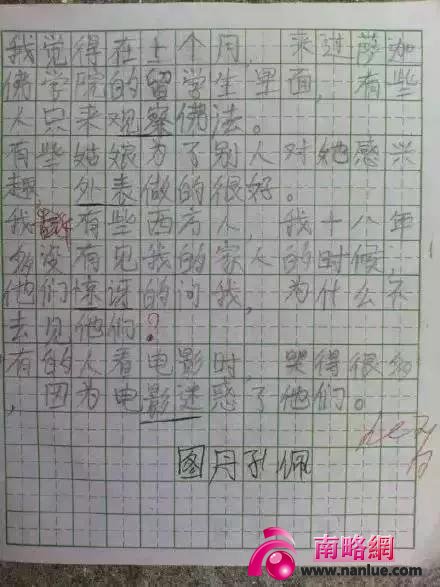 我觉得在十个月，来过萨迦
佛学院的留学生里面，有些
人只来观察佛法。
有些姑娘为了别人对她感兴
趣，外表做的很好。
我 有些西方人，我十八年
多没有见我的家人的时候，
他们惊讶的问我，为什么不
去见他们？
有的人看电影时，哭得很多
，因为电影迷惑了他们。
图丹孔佩
南略網
www.nanlue.com